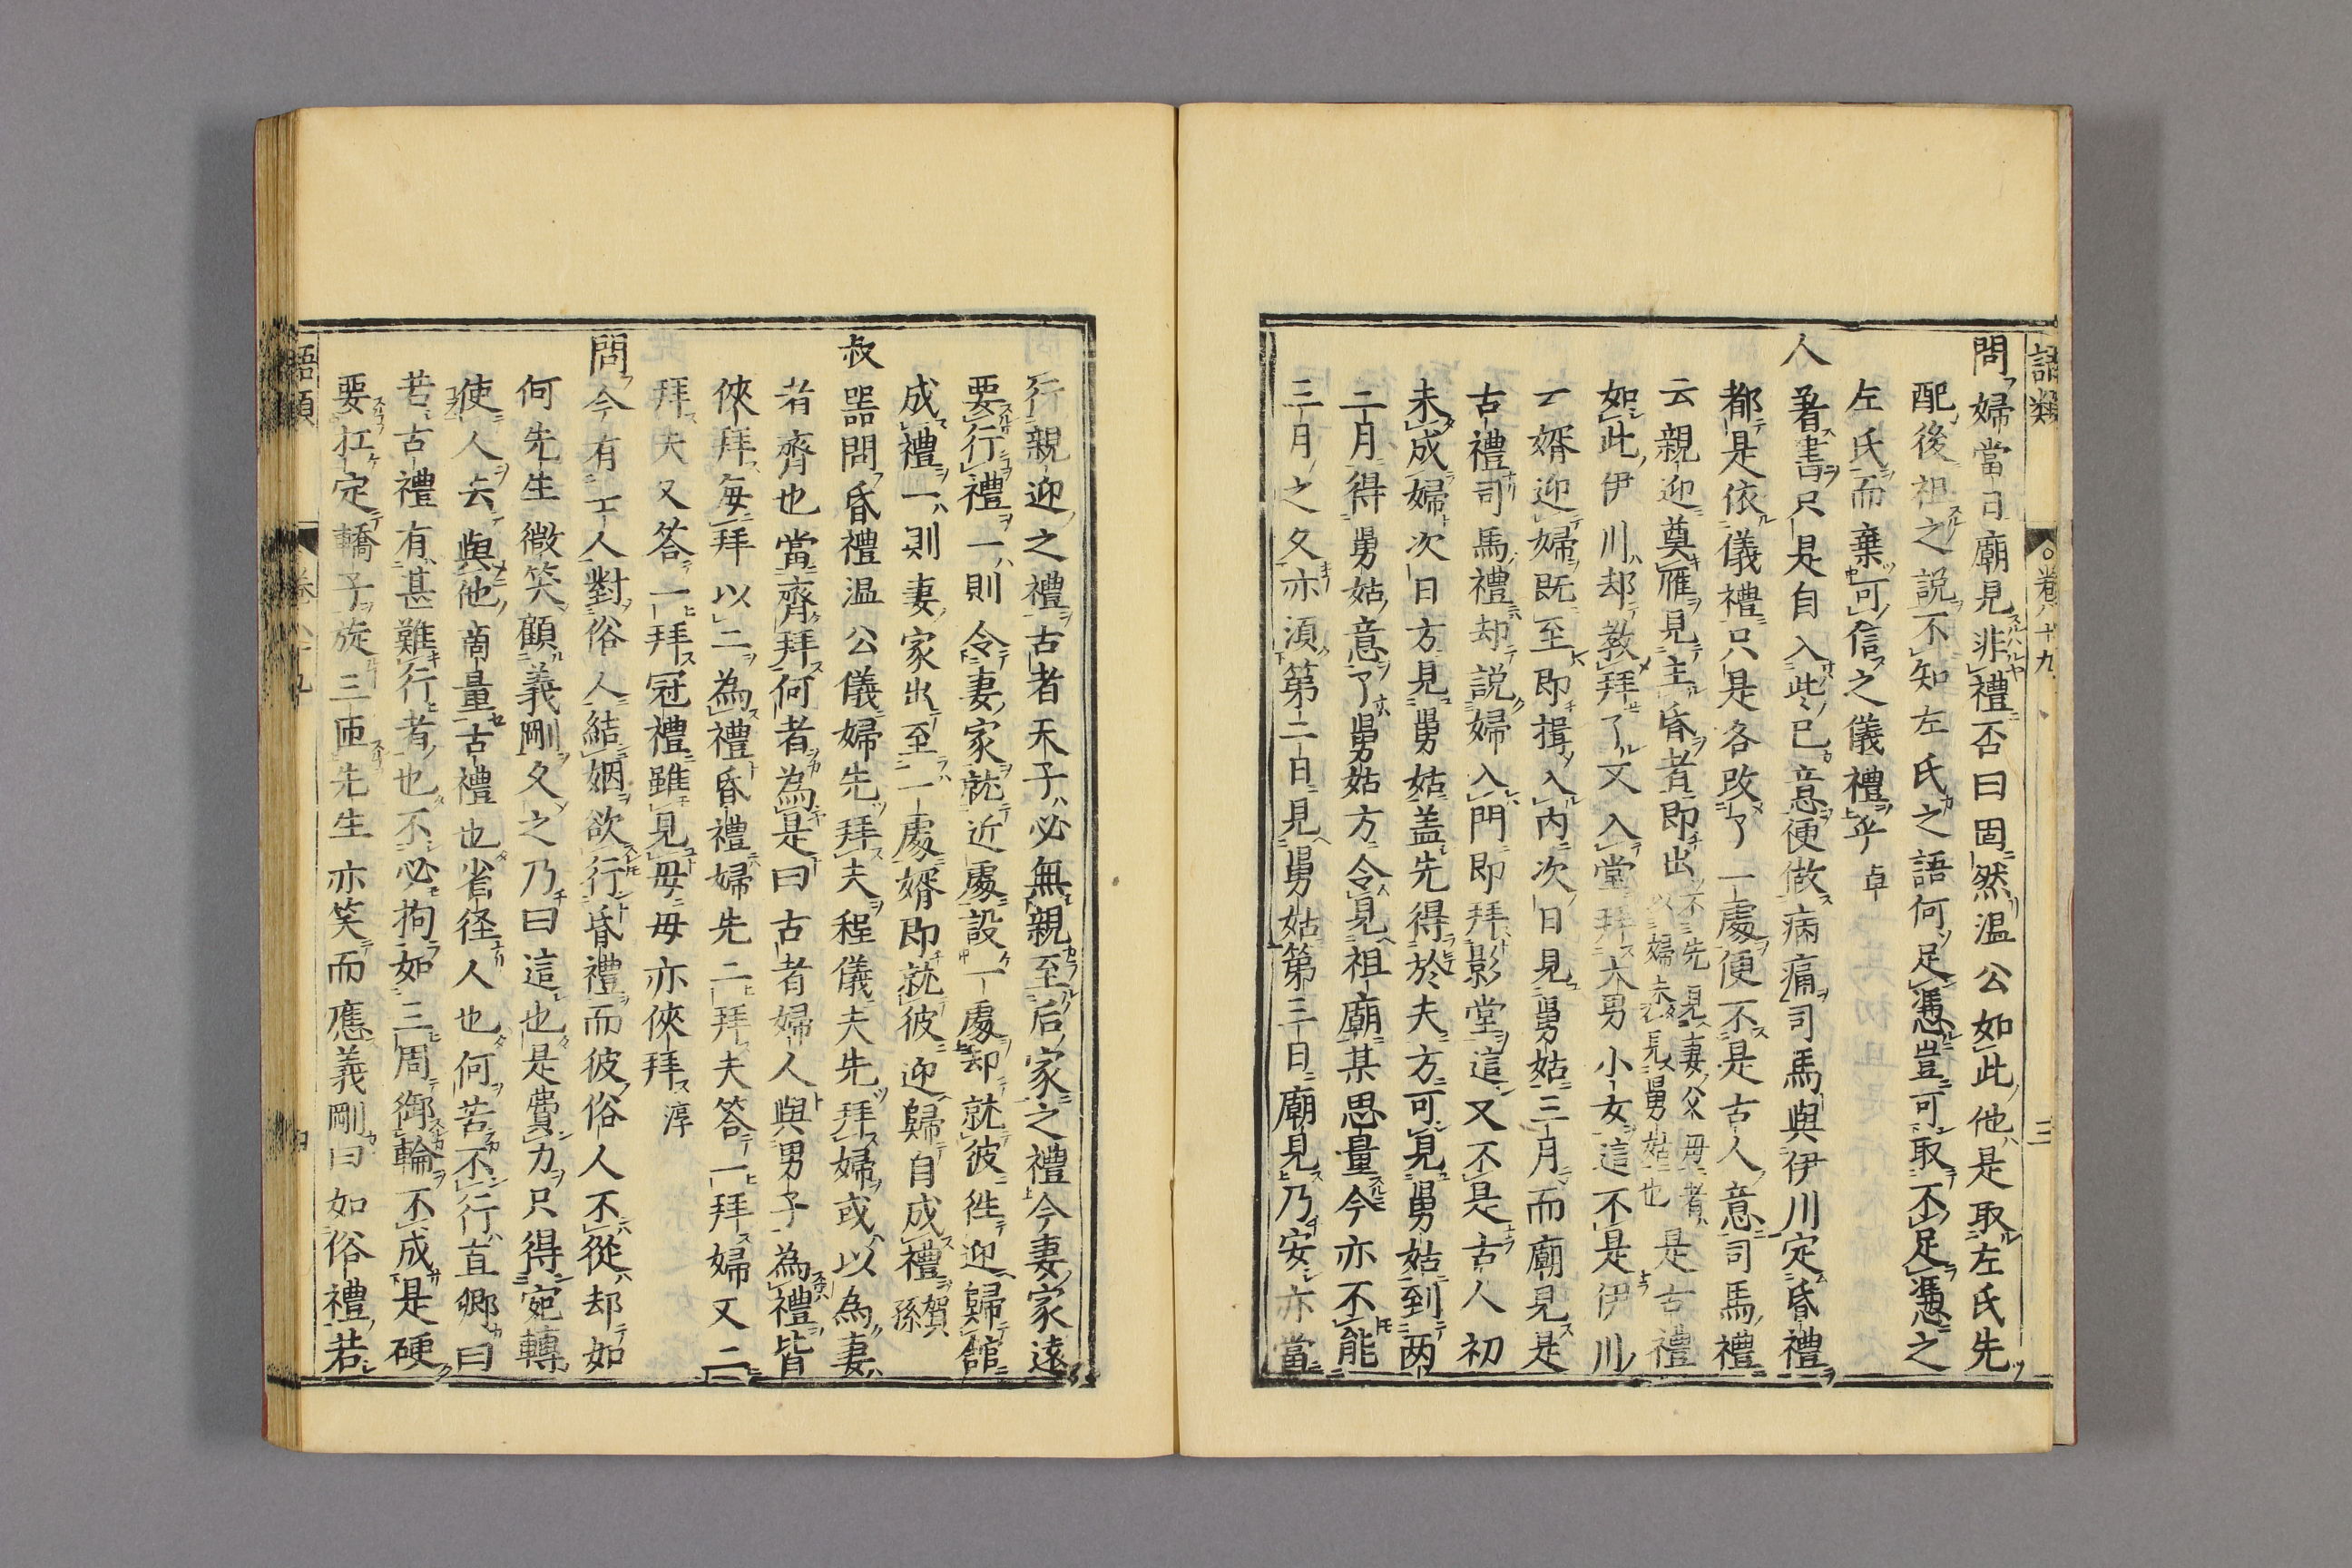 語類
卷八十九
三
問婦當日廟見非禮否曰固然温公如此他是取左氏先
配後祖之説不知左氏之語何足憑豈可取不足憑之
左氏而棄可信之儀禮乎 卓
人著書只是自入些己意便做病痛司馬與伊川定昏禮
都是依儀禮只是各改了一處便不是古人意司馬禮
云親迎奠雁見主昏者即出 不先見妻父母者以婦未見舅姑也 是古禮
如此伊川却教拜了又入堂拜大男小女這不是伊川
云婿迎婦既至即揖入内次日見舅姑三月而廟見是
古禮司馬禮却説婦入門即拜影堂這又不是古人初
未成婦次日方見舅姑盖先得於夫方可見舅姑到两
三月得舅姑意了舅姑方令見祖廟某思量今亦不能
三月之久亦須第二日見舅姑第三日廟見乃安亦當
行親迎之禮古者天子必無親至后家之禮今妻家遠
要行禮一則令妻家就近處設一處却就彼徃迎歸館
成禮一則妻家出至一處婿即就彼迎歸自成禮 賀孫
叔噐問昏禮温公儀婦先拜夫程儀夫先拜婦或以為妻
者齊也當齊拜何者為是曰古者婦人與男子為禮皆
俠拜每拜以二為禮昏禮婦先二拜夫答一拜婦又二
拜夫又答一拜冠禮雖見母母亦俠拜 淳
問今有士人對俗人結姻欲行昏禮而彼俗人不從却如
何先生微笑顧義剛久之乃曰這也是費力只得宛轉
使人去與他商量古禮也省径人也何苦不行直卿曰
若古禮有甚難行者也不必拘如三周御輪不成是硬
要扛定轎子旋三匝先生亦笑而應義剛曰如俗禮若
語類